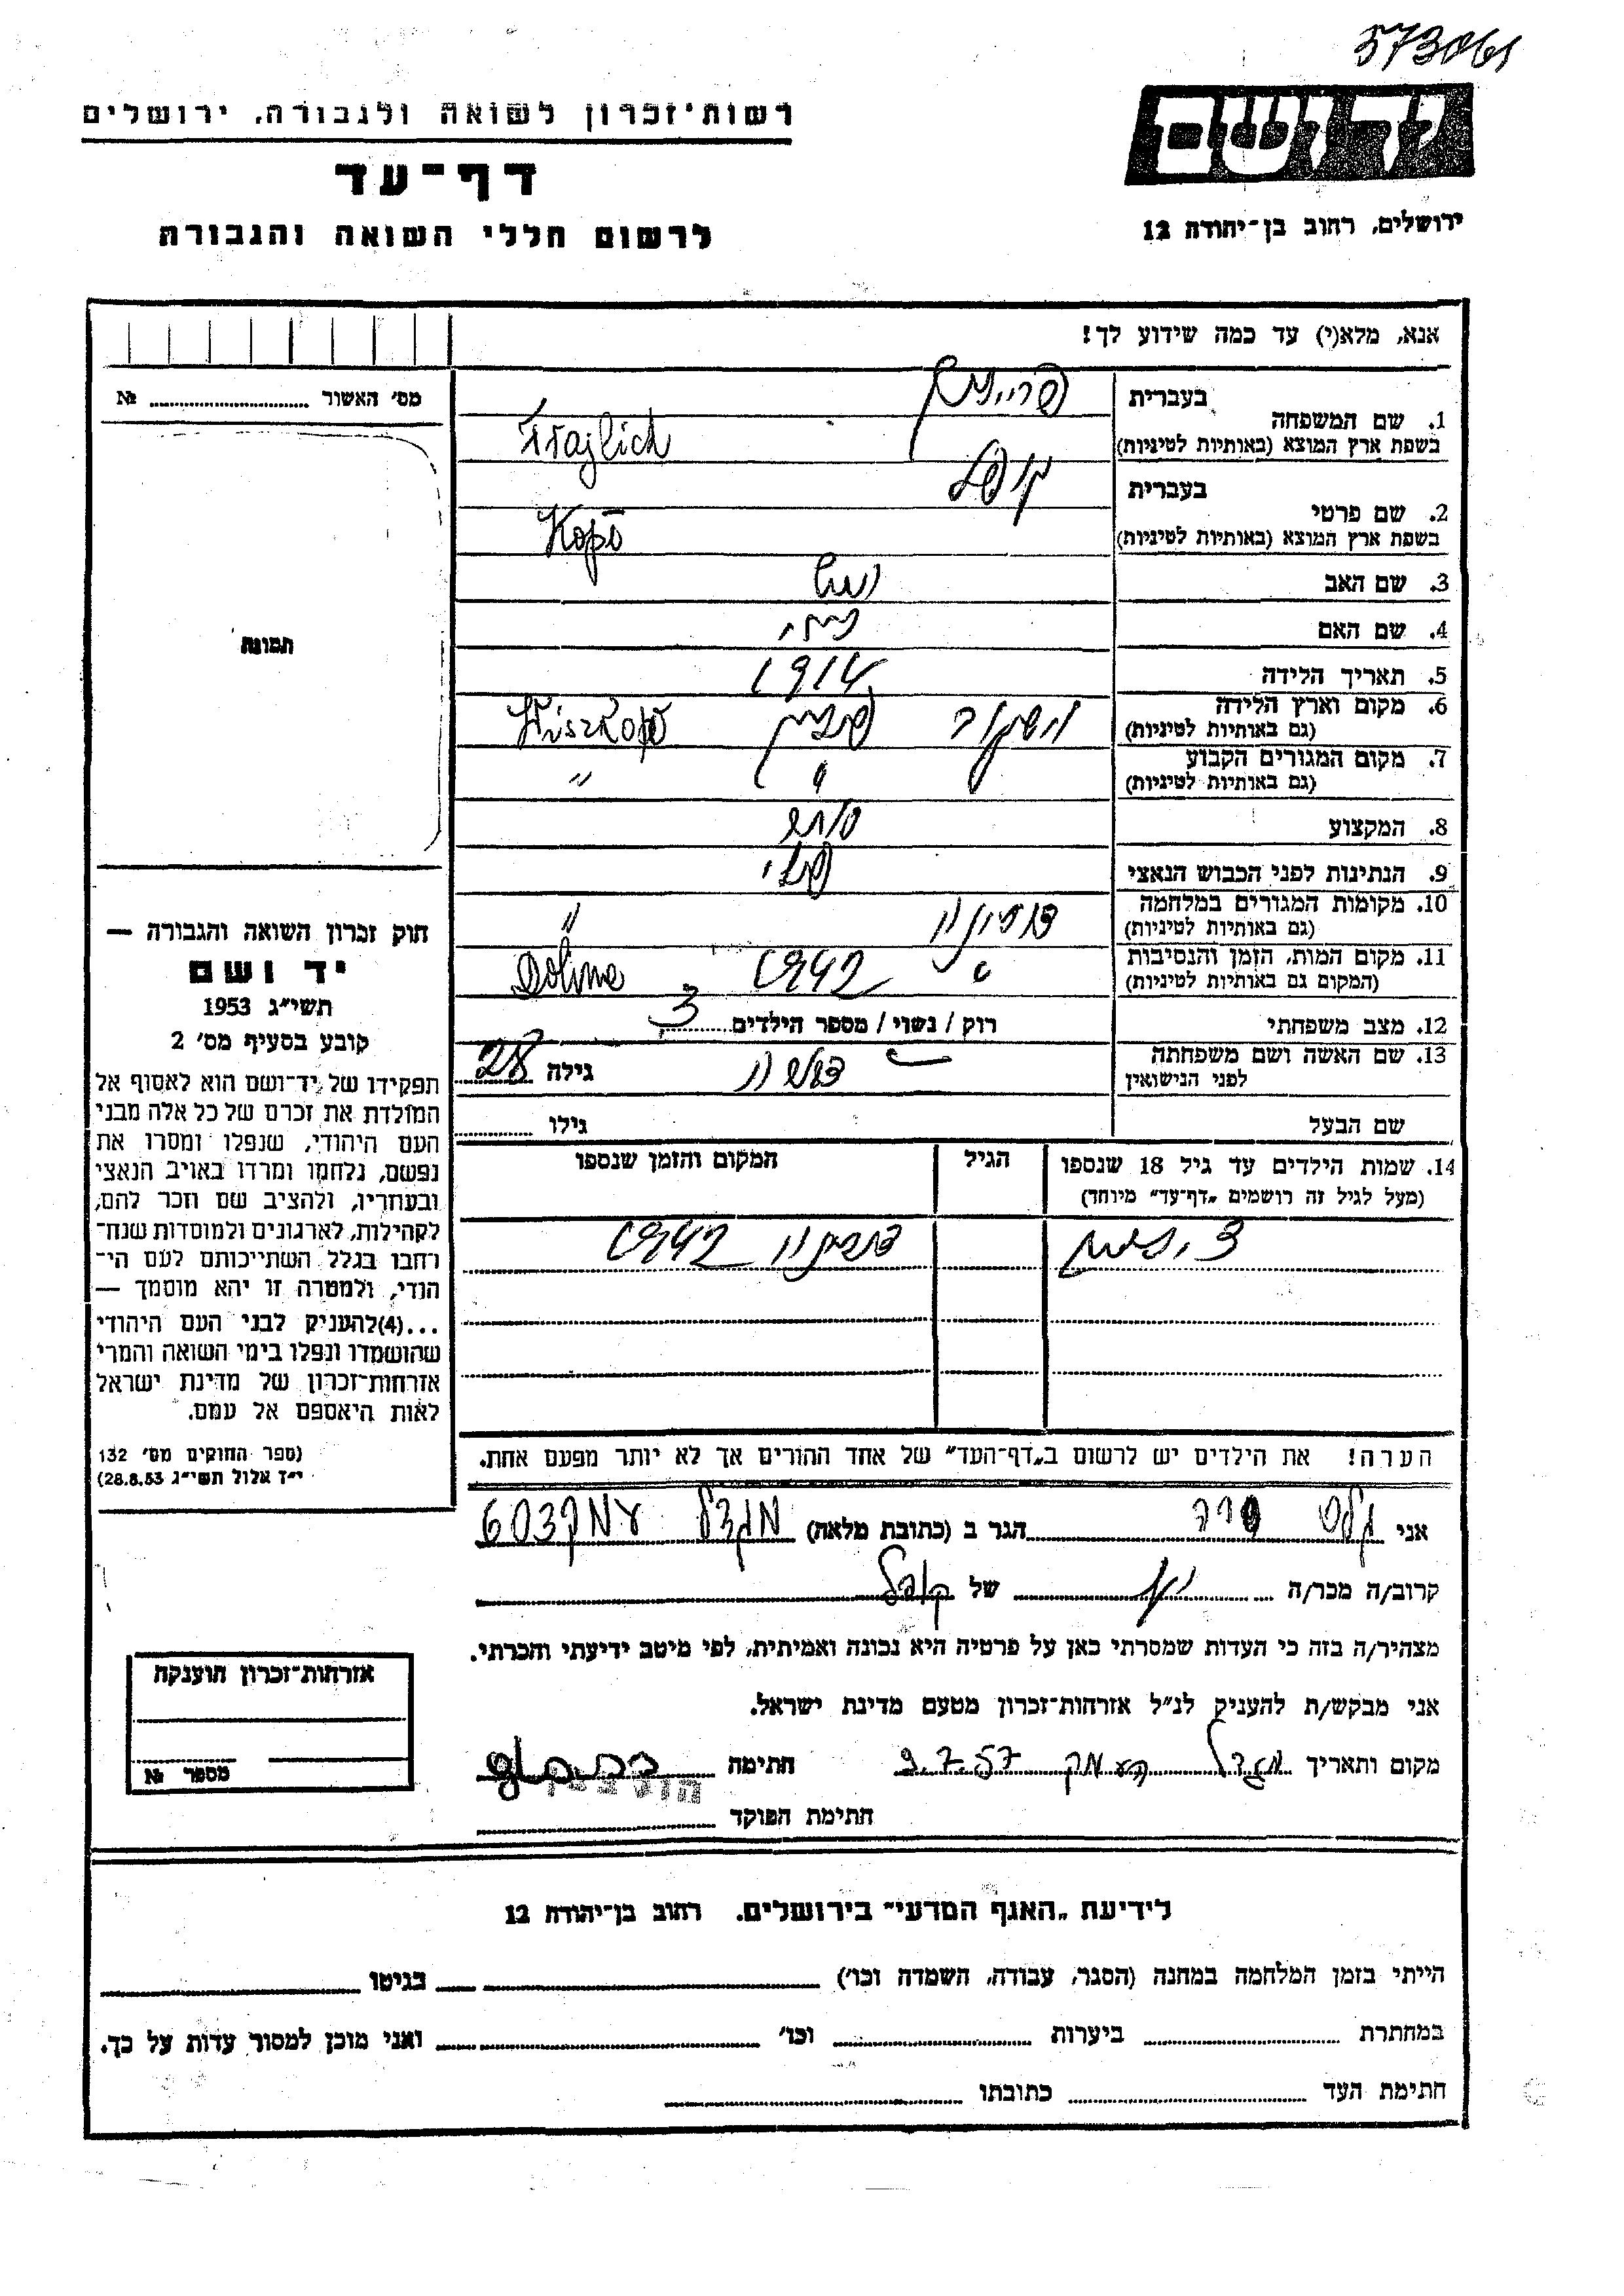 573061
יד ושם
רשות־זכרון לשואה ולגבורה, ירושלים
דף־עד
לרשום חללי השואה והגבורה
ירושלים, רחוב בן־יהודה 12
אנא, מלא(י) עד כמה שידוע לך!
מס׳ האשור № 
1. שם המשפחה בעברית
בשפת ארץ המוצא (באותיות לטיניות) Frajlich
2. שם פרטי בעברית קופל
בשפת ארץ המוצא (באותיות לטיניות)
3. שם האב
4. שם האם
5. תאריך הלידה 1914
6. מקום וארץ הלידה
(גם באותיות לטיניות)
7. מקום המגורים הקבוע " "
(גם באותיות לטיניות)
8. המקצוע סוחר
9. הנתינות לפני הכבוש הנאצי פולני
10. מקומות המגורים במלחמה "
(גם באותיות לטיניות)
11. מקום המות, הזמן והנסיבות " 1942
(המקום גם באותיות לטיניות)
12. מצב משפחתי רוק / נשוי / מספר הילדים 3
13. שם האשה ושם משפחתה גילה 28
לפני הנישואין
שם הבעל גילו
14. שמות הילדים עד גיל 18 שנספו הגיל המקום והזמן שנספו
(מעל לגיל זה רושמים „דף־עד״ מיוחד)
1942
הערה! את הילדים יש לרשום ב„דף־העד״ של אחד ההורים אך לא יותר מפעם אחת.
תמונה
חוק זכרון השואה והגבורה —
יד ושם
תשי״ג 1953
קובע בסעיף מס׳ 2
תפקידו של יד־ושם הוא לאסוף אל
המולדת את זכרם של כל אלה מבני
העם היהודי, שנפלו ומסרו את
נפשם, נלחמו ומרדו באויב הנאצי
ובעוזריו, ולהציב שם וזכר להם,
לקהילות, לארגונים ולמוסדות שנח־
רבו בגלל השתייכותם לעם הי־
הודי, ולמטרה זו יהא מוסמך —
...(4)להעניק לבני העם היהודי
שהושמדו ונפלו בימי השואה והמרי
אזרחות־זכרון של מדינת ישראל
לאות היאספם אל עמם.
(ספר החוקים מס׳ 132
י״ז אלול תשי״ג 28.8.53)
אני שרה הגר ב (כתובת מלאה) מגדל עמק 603
קרוב/ה מכר/ה של קופל
מצהיר/ה בזה כי העדות שמסרתי כאן על פרטיה היא נכונה ואמיתית, לפי מיטב ידיעתי והכרתי.
אני מבקש/ת להעניק לנ״ל אזרחות־זכרון מטעם מדינת ישראל.
מקום ותאריך מגדל העמק 9.7.57 חתימה
חתימת הפוקד
אזרחות־זכרון הוענקה
מספר №
לידיעת „האגף המדעי״ בירושלים, רחוב בן־יהודה 12
הייתי בזמן המלחמה במחנה (הסגר, עבודה, השמדה וכו׳) בגיטו
במחתרת ביערות וכו׳ ואני מוכן למסור עדות על כך.
חתימת העד כתובתו